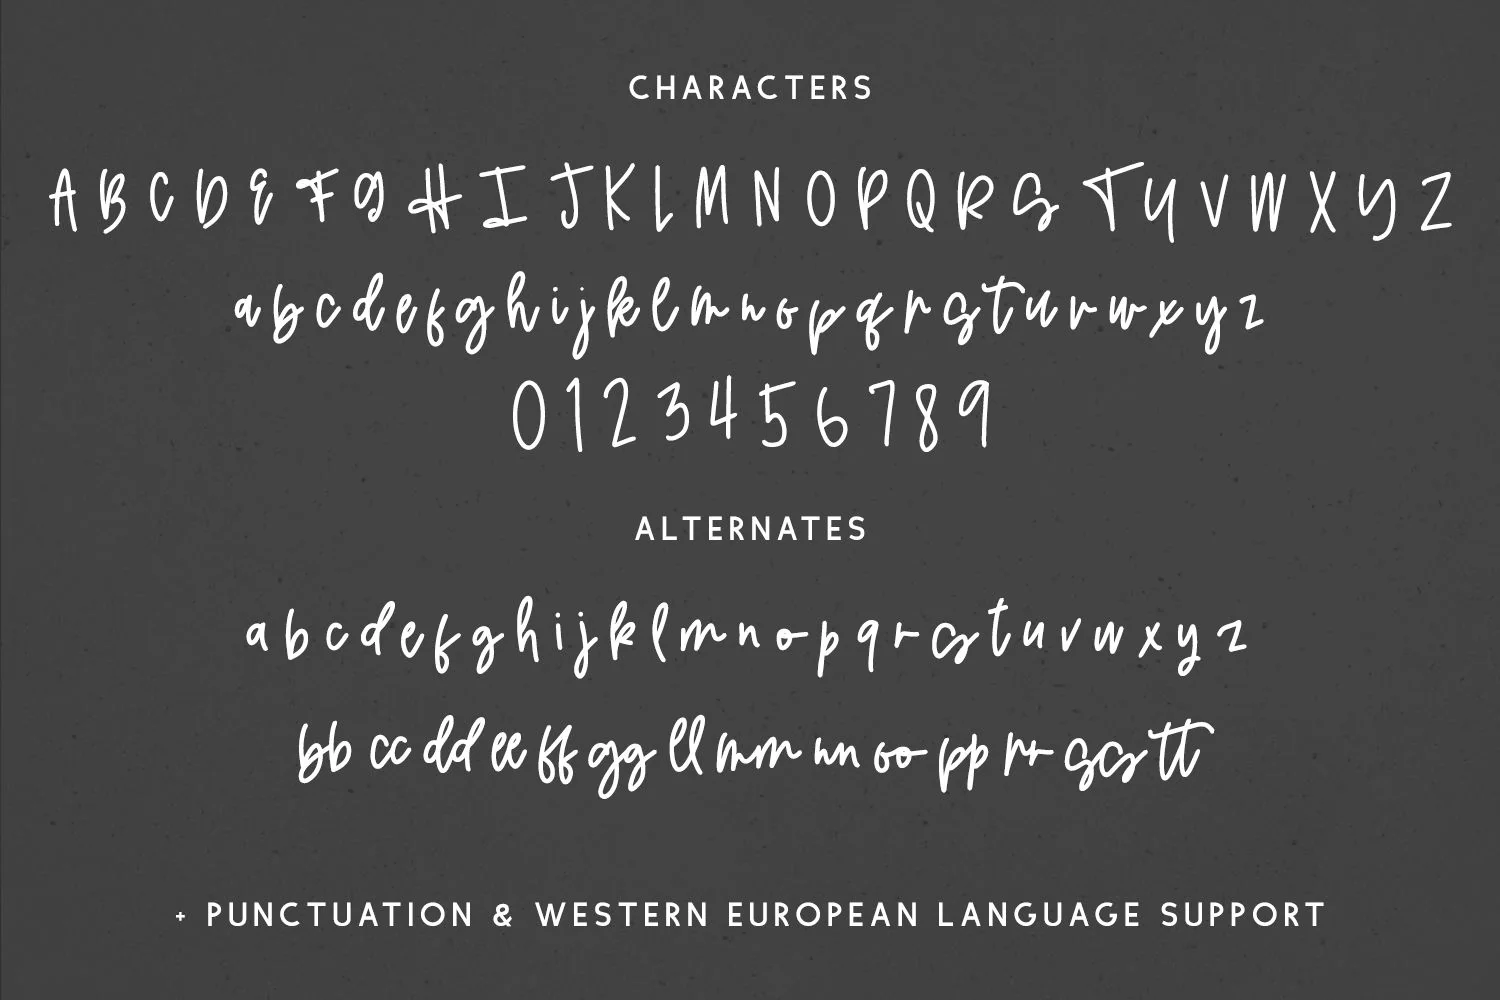 CHARACTERS
A B C D E F G H I J K L M N O P Q R S T U V W X Y Z
a b c d e f g h i j k l m n o p q r s t u r w x y z
0 1 2 3 4 5 6 7 8 9
ALTERNATES
a b c d e f g h i j k l m n o p q r s t u v w x y z
bb cc dd ee ff gg ll mm nn oo pp rr ss tt
+ PUNCTUATION & WESTERN EUROPEAN LANGUAGE SUPPORT